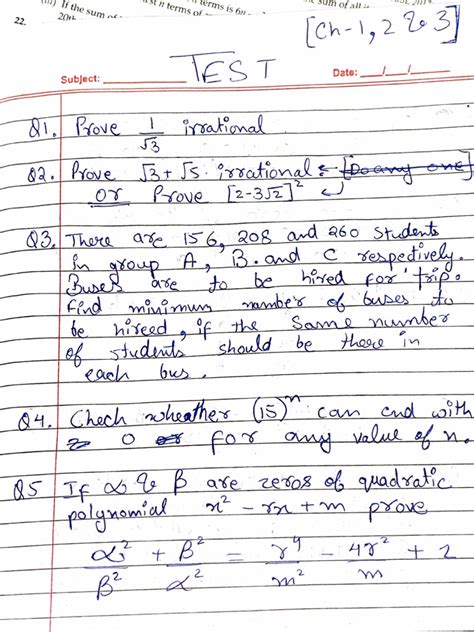 (iii) If the sum of
1st n terms of
terms is 6n
sum of all
22.
20th
[Ch-1, 2 & 3]
TEST
Subject:
Date: __/__/__
Q1. Prove 1/√3 irrational
Q2. Prove √3 + √5 irrational [Do any one]
or Prove [2-3√2]²
Q3. There are 156, 208 and 260 students
in group A, B and C respectively.
Buses are to be hired for trip.
Find minimum number of buses to
be hireed, if the same number
of students should be there in
each bus.
Q4. Chech wheather (15)ⁿ can end with
0 for any value of n.
Q5 If α & β are zeros of quadratic
polynomial x² - rx + m prove
α²/β² + β²/α² = r⁴/m² - 4r²/m + 2